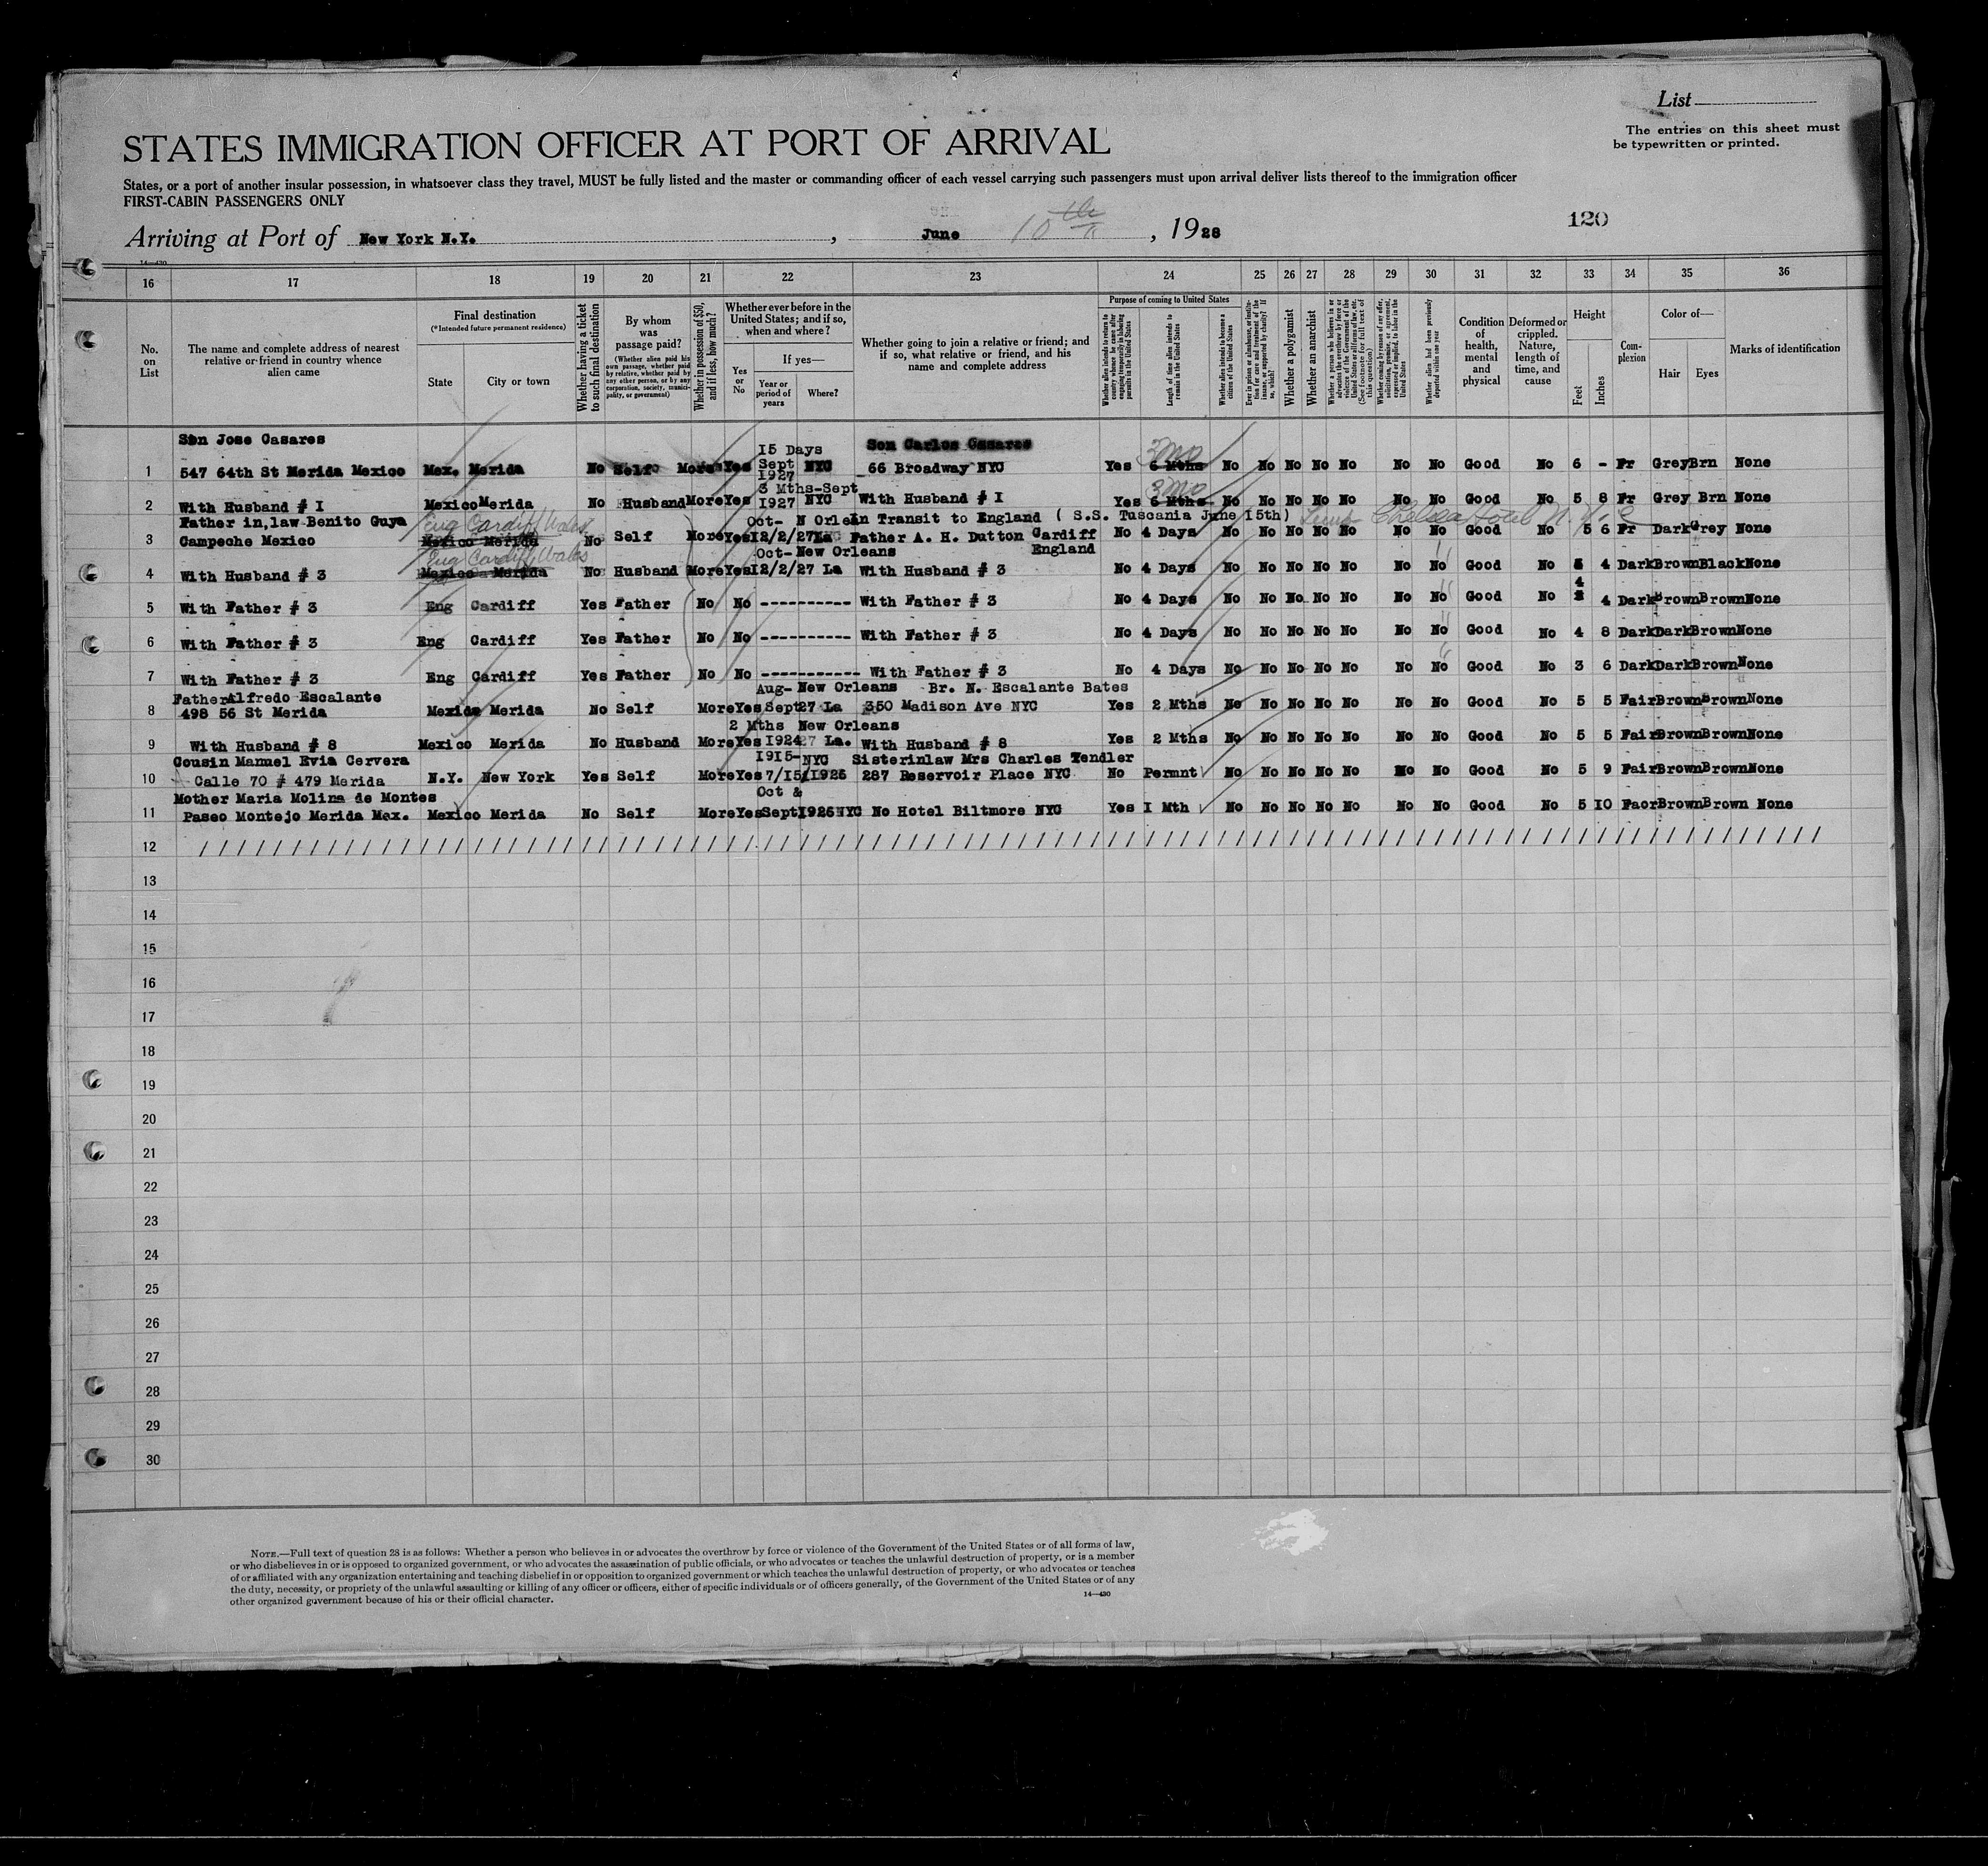 List
The entries on this sheet must
be typewritten or printed.
STATES IMMIGRATION OFFICER AT PORT OF ARRIVAL
States, or a port of another insular possession, in whatsoever class they travel, MUST be fully listed and the master or commanding officer of each vessel carrying such passengers must upon arrival deliver lists thereof to the immigration officer
FIRST-CABIN PASSENGERS ONLY
120
Arriving at Port of New York N.Y. , June 10th , 1928
14—430
16 17 18 19 20 21 22 23 24 25 26 27 28 29 30 31 32 33 34 35 36
No. on List
The name and complete address of nearest relative or friend in country whence alien came
Final destination
(*Intended future permanent residence)
State City or town
Whether having a ticket to such final destination
By whom was passage paid?
(Whether alien paid his own passage, whether paid by relative, whether paid by any other person, or by any corporation, society, municipality, or government)
Whether in possession of $50, and if less, how much?
Whether ever before in the United States; and if so, when and where?
Yes or No
If yes—
Year or period of years Where?
Whether going to join a relative or friend; and if so, what relative or friend, and his name and complete address
Purpose of coming to United States
Whether alien intends to return to country whence he came after engaging temporarily in laboring pursuits in the United States
Length of time alien intends to remain in the United States
Whether alien intends to become a citizen of the United States
Ever in prison or almshouse, or institution for care and treatment of the insane, or supported by charity? If so, which?
Whether a polygamist
Whether an anarchist
Whether a person who believes in or advocates the overthrow by force or violence of the Government of the United States or all forms of law, etc. (See footnote for full text of this question)
Whether coming by reason of any offer, solicitation, promise, or agreement, expressed or implied, to labor in the United States
Whether alien had been previously deported within one year
Condition of health, mental and physical
Deformed or crippled. Nature, length of time, and cause
Height
Feet Inches
Complexion
Color of—
Hair Eyes
Marks of identification
Son Jose Casares 15 Days Son Carlos Casares 3 mo
1 547 64th St Merida Mexico Mex. Merida No Self More Yes Sept 1927 NYC 66 Broadway NYC Yes 6 Mths No No No No No No No Good No 6 - Fr Grey Brn None
3 Mths-Sept 3 mo
2 With Husband # I Mexico Merida No Husband More Yes 1927 NYC With Husband # I Yes 6 Mths No No No No No No No Good No 5 8 Fr Grey Brn None
Father in,law Benito Guya Eng Cardiff Wales Oct- N Orlean In Transit to England ( S.S. Tuscania June 15th) Chelsea Hotel N.Y.C.
3 Campeche Mexico Mexico Merida No Self More Yes 12/2/27 La Father A. H. Dutton Cardiff England No 4 Days No No No No No No No Good No 5 6 Fr Dark Grey None
Eng Cardiff Wales Oct- New Orleans
4 With Husband # 3 Mexico Merida No Husband More Yes 12/2/27 La With Husband # 3 No 4 Days No No No No No No No Good No 5 4 Dark Brown Black None
5 With Father # 3 Eng Cardiff Yes Father No No ---------- With Father # 3 No 4 Days No No No No No No No Good No 4 4 Dark Brown Brown None
6 With Father # 3 Eng Cardiff Yes Father No No ---------- With Father # 3 No 4 Days No No No No No No No Good No 4 8 Dark Dark Brown None
7 With Father # 3 Eng Cardiff Yes Father No No ----------- With Father # 3 No 4 Days No No No No No No No Good No 3 6 Dark Dark Brown None
Father Alfredo Escalante Aug- New Orleans Br. N. Escalante Bates
8 498 56 St Merida Mexico Merida No Self More Yes Sept 27 La 350 Madison Ave NYC Yes 2 Mths No No No No No No No Good No 5 5 Fair Brown Brown None
2 Mths New Orleans
9 With Husband # 8 Mexico Merida No Husband More Yes 1924 27 La. With Husband # 8 Yes 2 Mths No No No No No No No Good No 5 5 Fair Brown Brown None
Cousin Manuel Evia Cervera 1915- NYC Sisterinlaw Mrs Charles Tendler
10 Calle 70 # 479 Merida N.Y. New York Yes Self More Yes 7/15/1926 287 Reservoir Place NYC No Permnt No No No No No No No Good No 5 9 Fair Brown Brown None
Mother Maria Molina de Montes Oct &
11 Paseo Montejo Merida Mex. Mexico Merida No Self More Yes Sept 1926 NYC No Hotel Biltmore NYC Yes I Mth No No No No No No No Good No 5 10 Faor Brown Brown None
12
13
14
15
16
17
18
19
20
21
22
23
24
25
26
27
28
29
30
NOTE.—Full text of question 28 is as follows: Whether a person who believes in or advocates the overthrow by force or violence of the Government of the United States or of all forms of law,
or who disbelieves in or is opposed to organized government, or who advocates the assassination of public officials, or who advocates or teaches the unlawful destruction of property, or is a member
of or affiliated with any organization entertaining and teaching disbelief in or opposition to organized government or which teaches the unlawful destruction of property, or who advocates or teaches
the duty, necessity, or propriety of the unlawful assaulting or killing of any officer or officers, either of specific individuals or of officers generally, of the Government of the United States or of any
other organized government because of his or their official character.
14—430